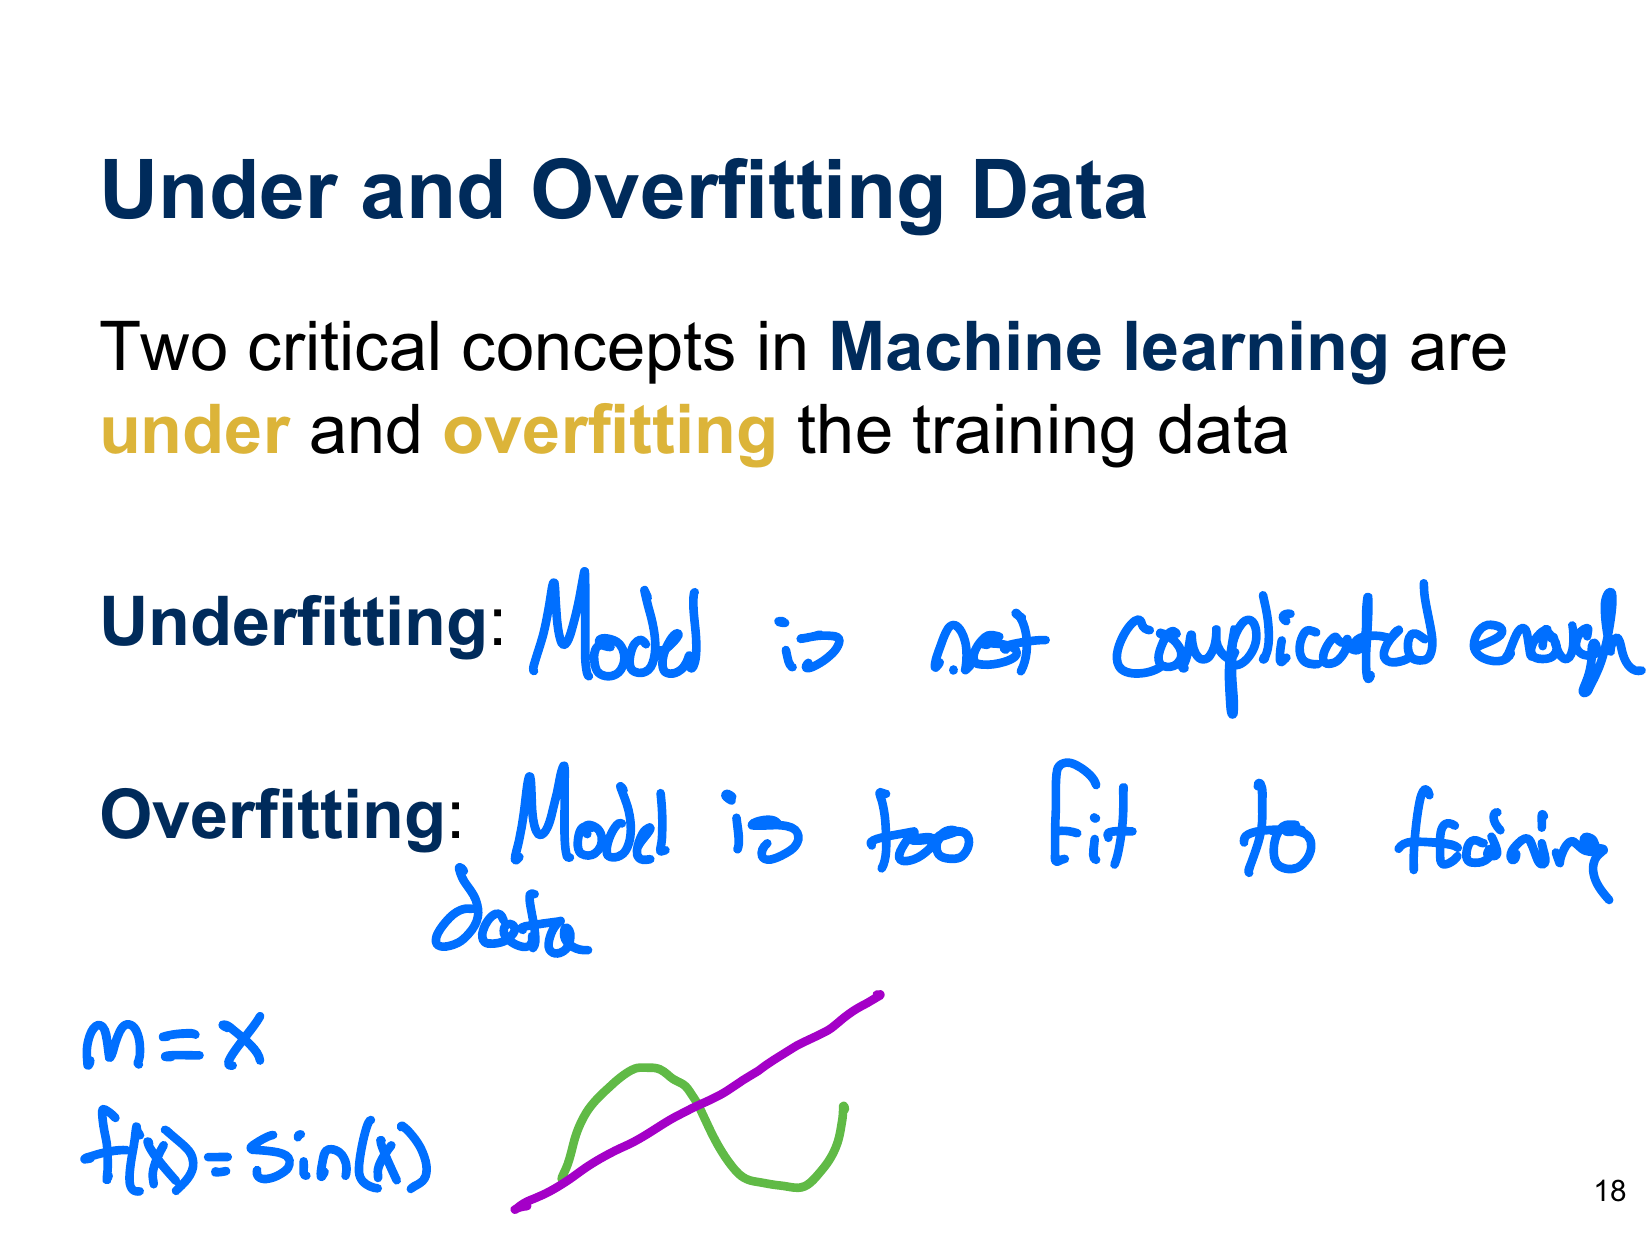 Under and Overfitting Data
Two critical concepts in Machine learning are
under and overfitting the training data
Underfitting: Model is not complicated enough
Overfitting: Model is too fit to training
data
m = x
f(x) = sin(x)
18